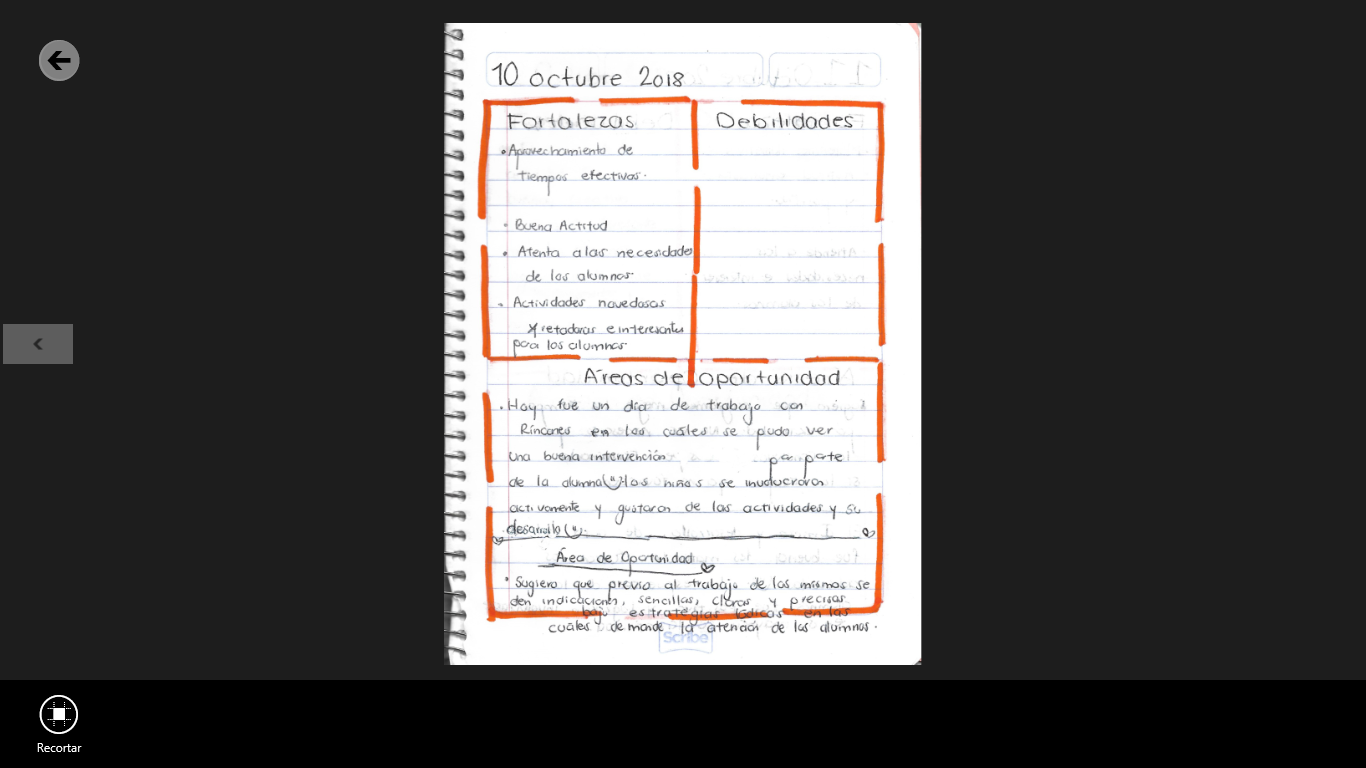 10 octubre 2018
Fortalezas
• Aprovechamiento de
tiempos efectivos.
• Buena Actitud
• Atenta a las necesidades
de los alumnos
- Actividades novedosas
retadoras e interesantes
para los alumnos
Debilidades
Áreas de oportunidad
• Hoy fue un día de trabajo con
Rincones en los cuáles se pudo ver
una buena intervención por parte
de la alumna los niños se involucraron
activamente y gustaron de las actividades y su
desarrollo
Área de Oportunidad
• Sugiero que previo al trabajo de los mismos se
den indicaciones, sencillas, claras y precisas
bajo estrategias lúdicas en las
cuáles demande la atención de los alumnos.
Scribe
Recortar